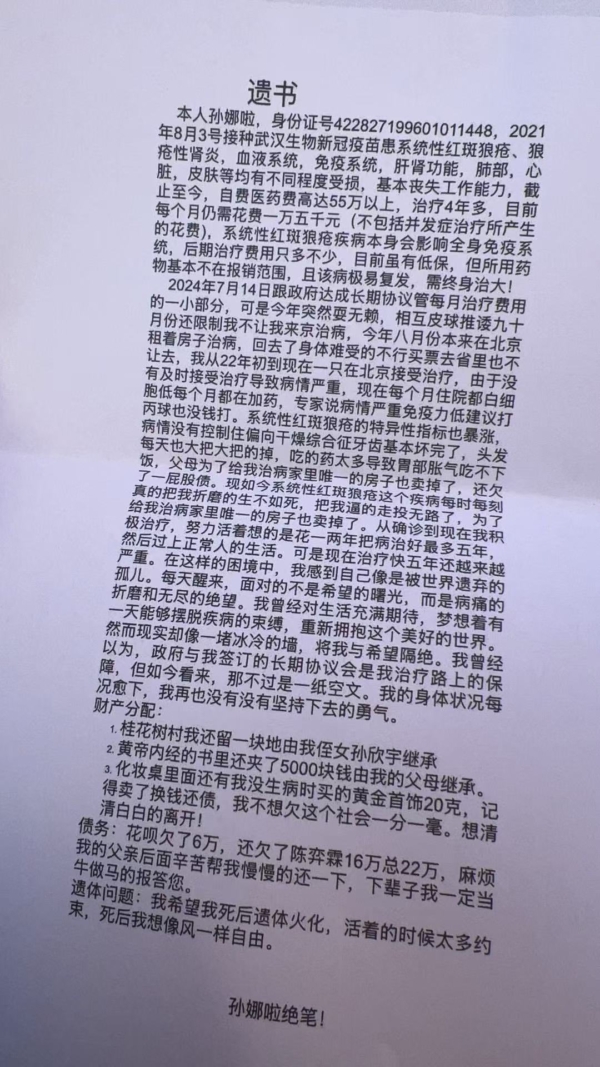 遗书
本人孙娜啦，身份证号422827199601011448，2021
年8月3号接种武汉生物新冠疫苗患系统性红斑狼疮、狼
疮性肾炎，血液系统，免疫系统，肝肾功能，肺部，心
脏，皮肤等均有不同程度受损，基本丧失工作能力，截
止至今，自费医药费高达55万以上，治疗4年多，目前
每个月仍需花费一万五千元（不包括并发症治疗所产生
的花费），系统性红斑狼疮疾病本身会影响全身免疫系
统，后期治疗费用只多不少，目前虽有低保，但所用药
物基本不在报销范围，且该病极易复发，需终身治大！
2024年7月14日跟政府达成长期协议管每月治疗费用
的一小部分，可是今年突然耍无赖，相互皮球推诿九十
月份还限制我不让我来京治病，今年八月份本来在北京
租着房子治病，回去了身体难受的不行买票去省里也不
让去，我从22年初到现在一只在北京接受治疗，由于没
有及时接受治疗导致病情严重，现在每个月住院都白细
胞低每个月都在加药，专家说病情严重免疫力低建议打
丙球也没钱打。系统性红斑狼疮的特异性指标也暴涨，
病情没有控制住偏向干燥综合征牙齿基本坏完了，头发
每天也大把大把的掉，吃的药太多导致胃部胀气吃不下
饭，父母为了给我治病家里唯一的房子也卖掉了，还欠
了一屁股债。现如今系统性红斑狼疮这个疾病每时每刻
真的把我折磨的生不如死，把我逼的走投无路了，为了
给我治病家里唯一的房子也卖掉了。从确诊到现在我积
极治疗，努力活着想的是花一两年把病治好最多五年，
然后过上正常人的生活。可是现在治疗快五年还越来越
严重。在这样的困境中，我感到自己像是被世界遗弃的
孤儿。每天醒来，面对的不是希望的曙光，而是病痛的
折磨和无尽的绝望。我曾经对生活充满期待，梦想着有
一天能够摆脱疾病的束缚，重新拥抱这个美好的世界。
然而现实却像一堵冰冷的墙，将我与希望隔绝。我曾经
以为，政府与我签订的长期协议会是我治疗路上的保
障，但如今看来，那不过是一纸空文。我的身体状况每
况愈下，我再也没有没有坚持下去的勇气。
财产分配：
1. 桂花树村我还留一块地由我侄女孙欣宇继承
2. 黄帝内经的书里还夹了5000块钱由我的父母继承。
3. 化妆桌里面还有我没生病时买的黄金首饰20克，记
得卖了换钱还债，我不想欠这个社会一分一毫。想清
清白白的离开！
债务：花呗欠了6万，还欠了陈弈霖16万总22万，麻烦
我的父亲后面辛苦帮我慢慢的还一下，下辈子我一定当
牛做马的报答您。
遗体问题：我希望我死后遗体火化，活着的时候太多约
束，死后我想像风一样自由。
孙娜啦绝笔！